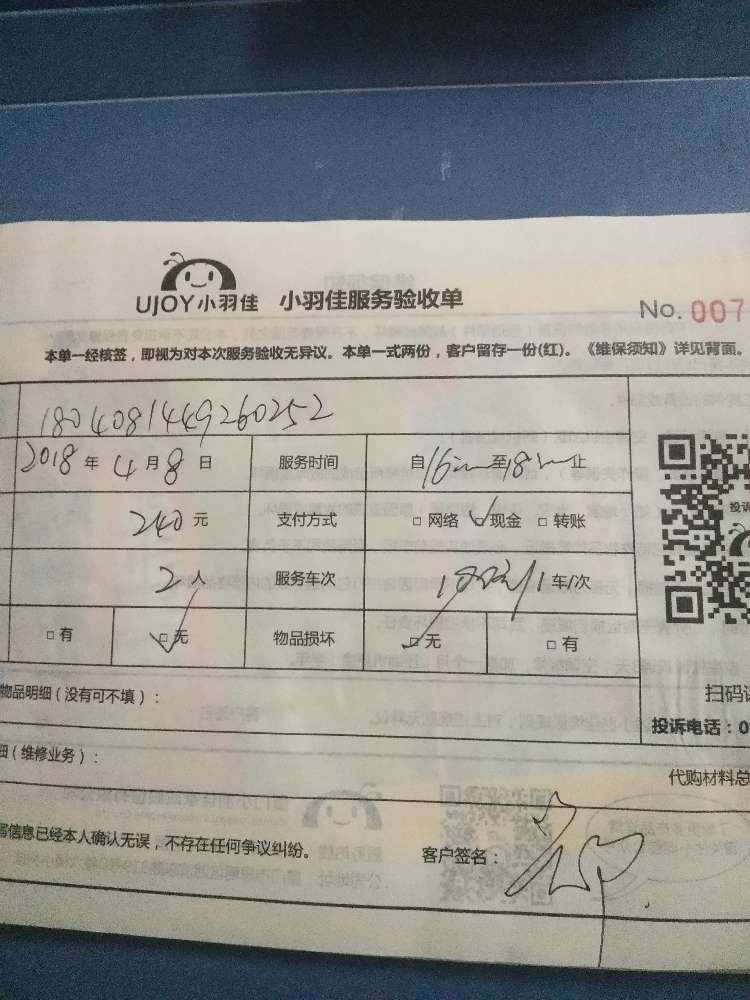 UJOY小羽佳 小羽佳服务验收单
No. 007
本单一经核签，即视为对本次服务验收无异议。本单一式两份，客户留存一份(红)。《维保须知》详见背面。
1804081449260252
2018年4月8日 服务时间 自16 至18 止
240元 支付方式 □网络 □现金 □转账
投诉
2人 服务车次 1车/次
□有 □无 物品损坏 □无 □有
物品明细（没有可不填）：
扫码
投诉电话：0
（维修业务）：
代购材料总
写信息已经本人确认无误，不存在任何争议纠纷。 客户签名：